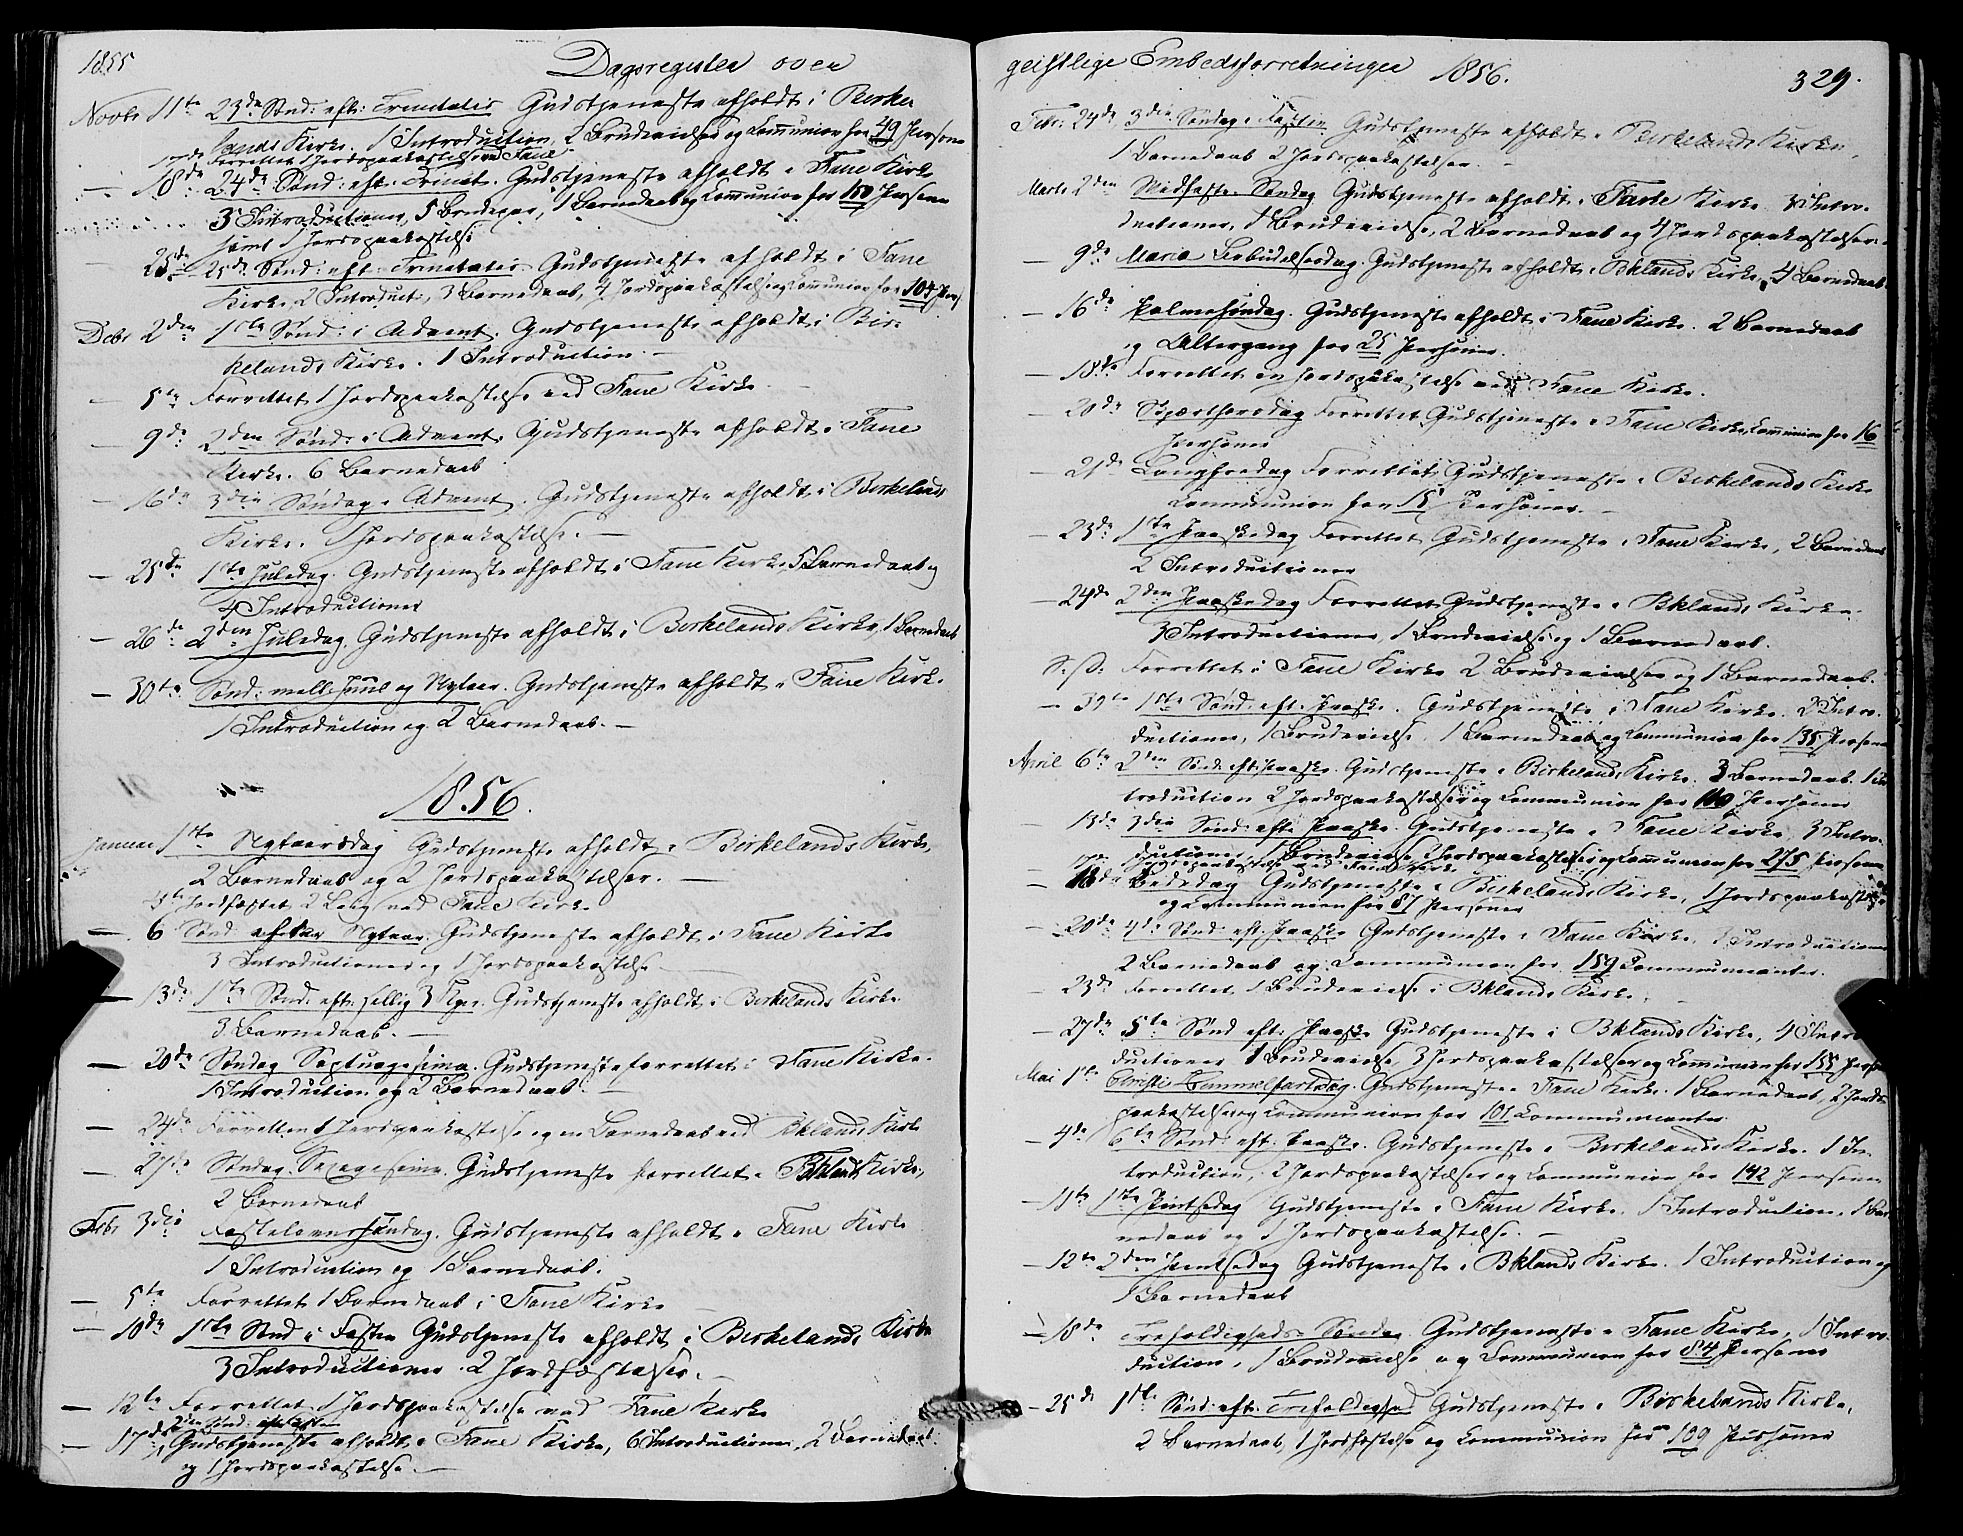 1855
Dagsregister over
Novbr 11te 23de Sønd: eft: Trinitatis Gudstjeneste afholdt i Birke
lands Kirke. 1 Introduction, 2 Brudevielser og Communion for 49 Persone
17de Forrettet 1 Jordspaakastelse ved Fane
— 18de 24de Sønd: eft: Trinit. Gudstjeneste afholdt i Fane Kirke
3 Introductioner, 5 Brudepar, 1 Barnedaab og Communion for 110 Personer
samt 1 Jordspaakastelse
25de 25de Sønd: eft: Trinitatis Gudstjeneste afholdt i Fane
Kirke 2 Introduct:, 3 Barnedaab, 4 Jordspaakastelse og Communion for 104 Pers
Debr 2den 1ste Sønd: i Advent. Gudstjeneste afholdt i Bir-
kelands Kirke. 1 Introduction. —
— 5te Forrettet 1 Jordspaakastelse ved Fane Kirke. —
— 9de 2den Sønd: i Advent. Gudstjeneste afholdt i Fane
Kirke. 6 Barnedaab
— 16de 3die Søndag i Advent. Gudstjeneste afholdt i Birkelands
Kirke. 1 Jordspaakastelse. —
— 25de 1ste Juledag. Gudstjeneste afholdt i Fane Kirke, 5 Barnedaab og
4 Introductioner
— 26de 2den Juledag. Gudstjeneste afholdt i Birkelands Kirke, 1 Barnedaab
— 30te Sønd: mell: Juul og Nytaar. Gudstjeneste afholdt i Fane Kirke.
1 Introduction og 2 Barnedaab. —
1856.
Januar 1ste Nytaarsdag Gudstjeneste afholdt i Birkelands Kirke,
2 Barnedaab og 2 Jordspaakastelser. —
Jordfæstet 2 Liig ved Fane Kirke
— 6 Sønd: efter Nytaar. Gudstjeneste afholdt i Fane Kirke
3 Introductioner og 1 Jordspaakastelse. —
— 13de 1ste Sønd: eft: hellig 3 Kger. Gudstjeneste afholdt i Birkelands Kirke
3 Barnedaab. —
— 20de Søndag Septuagesima. Gudstjeneste forrettet i Fane Kirke.
1 Introduction og 2 Barnedaab. —
— 24de Forretten 1 Jordspaakastelse og en Barnedaab ved Bklands Kirke
— 27de Søndag Sexagesima. Gudstjeneste forrettet i Bklands Kirke,
2 Barnedaab
Febr 3die Fastelavnssøndag. Gudstjeneste afholdt i Fane Kirke
1 Introduction og 1 Barnedaab.
— 5te Forrettet 1 Barnedaab i Fane Kirke —
— 10de 1ste Snd i Fasten Gudstjeneste afholdt i Birkelands Kirke
3 Introductioner. 2 Jordfæstelser. —
— 12te Forrettet 1 Jordspaakastelse ved Fane Kirke
2den Sønd: i Fasten
— 17de Gudstjeneste afholdt i Fane Kirke, 6 Introductioner, 2 Barnedaab.
og 1 Jordspaakastelse. —
geistlige Embedsforretninger 1856.
329.
Febr: 24de 3die Søndag i Fasten Gudstjeneste afholdt i Birkelands Kirke,
1 Barnedaab 2 Jordspaakastelser. —
Marts 2den Midfaste Søndag Gudstjeneste afholdt i Fane Kirke. 3 Intro-
ductioner, 1 Brudevielse, 2 Barnedaab og 4 Jordspaakastelser.
— 9de Maria Bebudelsesdag. Gudstjeneste afholdt i Bklands Kirke, 4 Barnedaab.
— 16de Palmesøndag. Gudstjeneste afholdt i Fane Kirke. 2 Barnedaab
og Altergang for 25 Personer.
— 18de Forrettet en Jordspaakastelse ved Fane Kirke.
— 20de Skjærthorsdag Forrettet Gudstjeneste i Fane Kirke, Communion for 16
Personer
— 21de Langfredag Forrettet Gudstjeneste i Birkelands Kirke
Communion for 15 Personer. —
— 23de 1ste Paaskedag Forrettet Gudstjeneste i Fane Kirke, 2 Barnedaab
2 Introductioner
— 24de 2den Paaskedag Forrettet Gudstjeneste i Bklands Kirke.
3 Introductioner, 1 Brudevielse og 1 Barnedaab.
S: D: Forrettet i Fane Kirke 2 Brudevielser og 1 Barnedaab.
— 30te 1ste Sønd: eft: Paaske. Gudstjeneste i Fane Kirke. 2 Intro-
ductioner, 1 Brudevielse, 1 Barnedaab og Communion for 135 Persone
April 6te 2den Sønd: eft: Paaske. Gudstjeneste i Birkelands Kirke. 3 Barnedaab. 1 In
troduction 2 Jordspaakastelser og Communion for 110 Personer
— 13de 3die Sønd: efter Paaske. Gudstjeneste i Fane Kirke 3 Intro-
ductioner 1 Brudevielse, 2 Jordspaakastelse og Communion for 275 Persone
— 18de Bededag Gudstjeneste i Birkelands Kirke, 1 Jordspaakastelse
og Communion for 87 Personer
— 20de 4de Sønd: eft: Paaske Gudstjeneste i Fane Kirke, 3 Introductioner
2 Barnedaab og Communion for 159 Communicanter.
— 23de Forrettet 1 Brudevielse i Bklands Kirke.
— 27de 5te Sønd eft: Paaske Gudstjeneste i Bklands Kirke, 4 Intro
ductioner 1 Brudevielse, 3 Jordspaakastelser og Communion for 155 Persone
Mai 1ste Christi Himmelfartsdag. Gudstjeneste i Fane Kirke. 1 Barnedaab, 2 Jords
paakastelse og Communion for 101 Communicanter
— 4de 6te Sønd: eft: Paaske. Gudstjeneste i Birkelands Kirke. 1 In-
troduction, 2 Jordspaakastelser og Communion for 142 Personer
— 11te 1ste Pintsedag Gudstjeneste i Fane Kirke. 1 Introduction, 1 Bar
nedaab og 1 Jordspaakastelse. —
— 12te 2den Pintsedag Gudstjeneste i Bklands Kirke. 1 Introduction og
1 Barnedaab
— 18de Trefoldigheds Søndag Gudstjeneste i Fane Kirke, 1 Intro-
duction, 1 Brudevielse og Communion for 84 Personer
— 25de 1ste Sønd: eft: Trefoldighed Gudstjeneste i Birkelands Kirke,
2 Barnedaab, 1 Jordfæstelse og Communion for 109 Personer